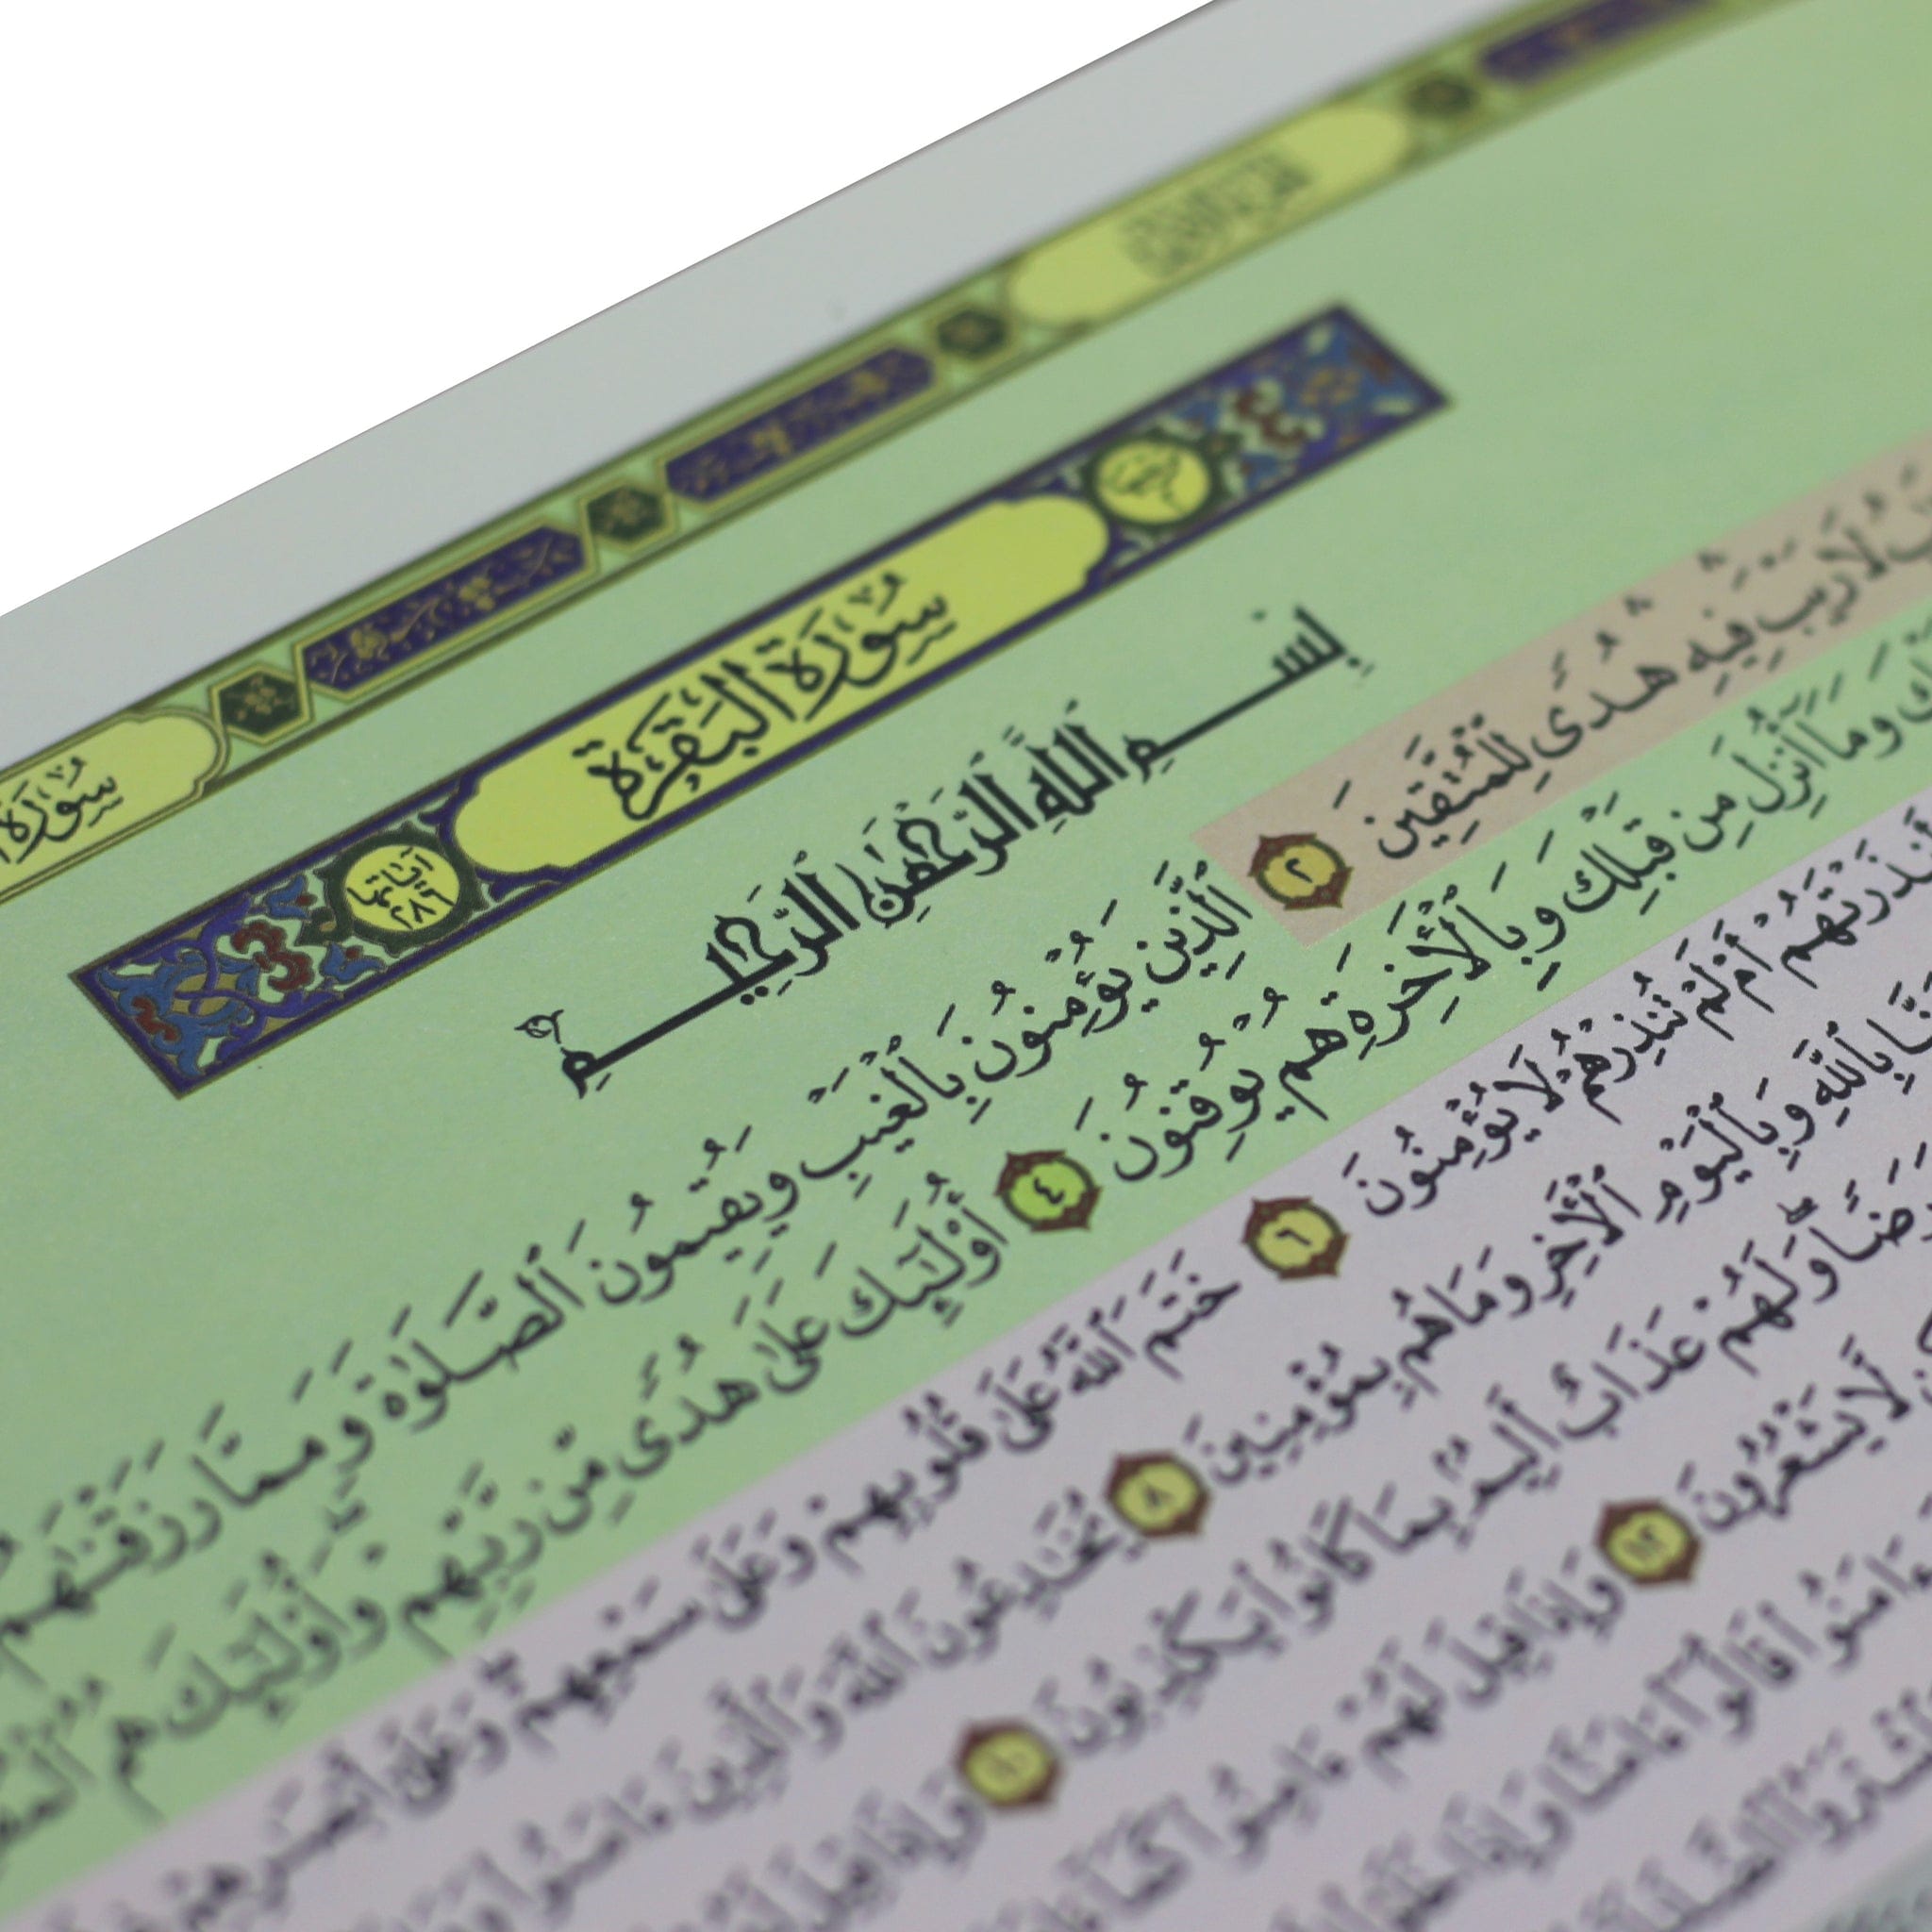 سُورَةُ البَقَرَةِ
آيَاتُهَا ٢٨٦
بِسْمِ ٱللَّهِ ٱلرَّحْمَٰنِ ٱلرَّحِيمِ
لَا رَيْبَ فِيهِ هُدًى لِّلْمُتَّقِينَ ٢
ٱلَّذِينَ يُؤْمِنُونَ بِٱلْغَيْبِ وَيُقِيمُونَ ٱلصَّلَوٰةَ وَمِمَّا رَزَقْنَٰهُمْ
وَمَآ أُنزِلَ مِن قَبْلِكَ وَبِٱلْأَخِرَةِ هُمْ يُوقِنُونَ ٤ أُوْلَٰٓئِكَ عَلَىٰ هُدًى مِّن رَّبِّهِمْ وَأُوْلَٰٓئِكَ هُمُ
أَمْ لَمْ تُنذِرْهُمْ لَا يُؤْمِنُونَ ٦ خَتَمَ ٱللَّهُ عَلَىٰ قُلُوبِهِمْ وَعَلَىٰ سَمْعِهِمْ وَعَلَىٰٓ أَبْصَٰرِهِمْ
بِٱللَّهِ وَبِٱلْيَوْمِ ٱلْأَخِرِ وَمَا هُم بِمُؤْمِنِينَ ٨ يُخَٰدِعُونَ ٱللَّهَ وَٱلَّذِينَ ءَامَنُوا۟
وَلَهُمْ عَذَابٌ أَلِيمٌۢ بِمَا كَانُوا۟ يَكْذِبُونَ ١٠ وَإِذَا قِيلَ
لَّا يَشْعُرُونَ ١٢ وَإِذَا قِيلَ لَهُمْ ءَامِنُوا۟ كَمَآ
ءَامَنُوا۟ قَالُوٓا۟ ءَامَنَّا وَإِذَا